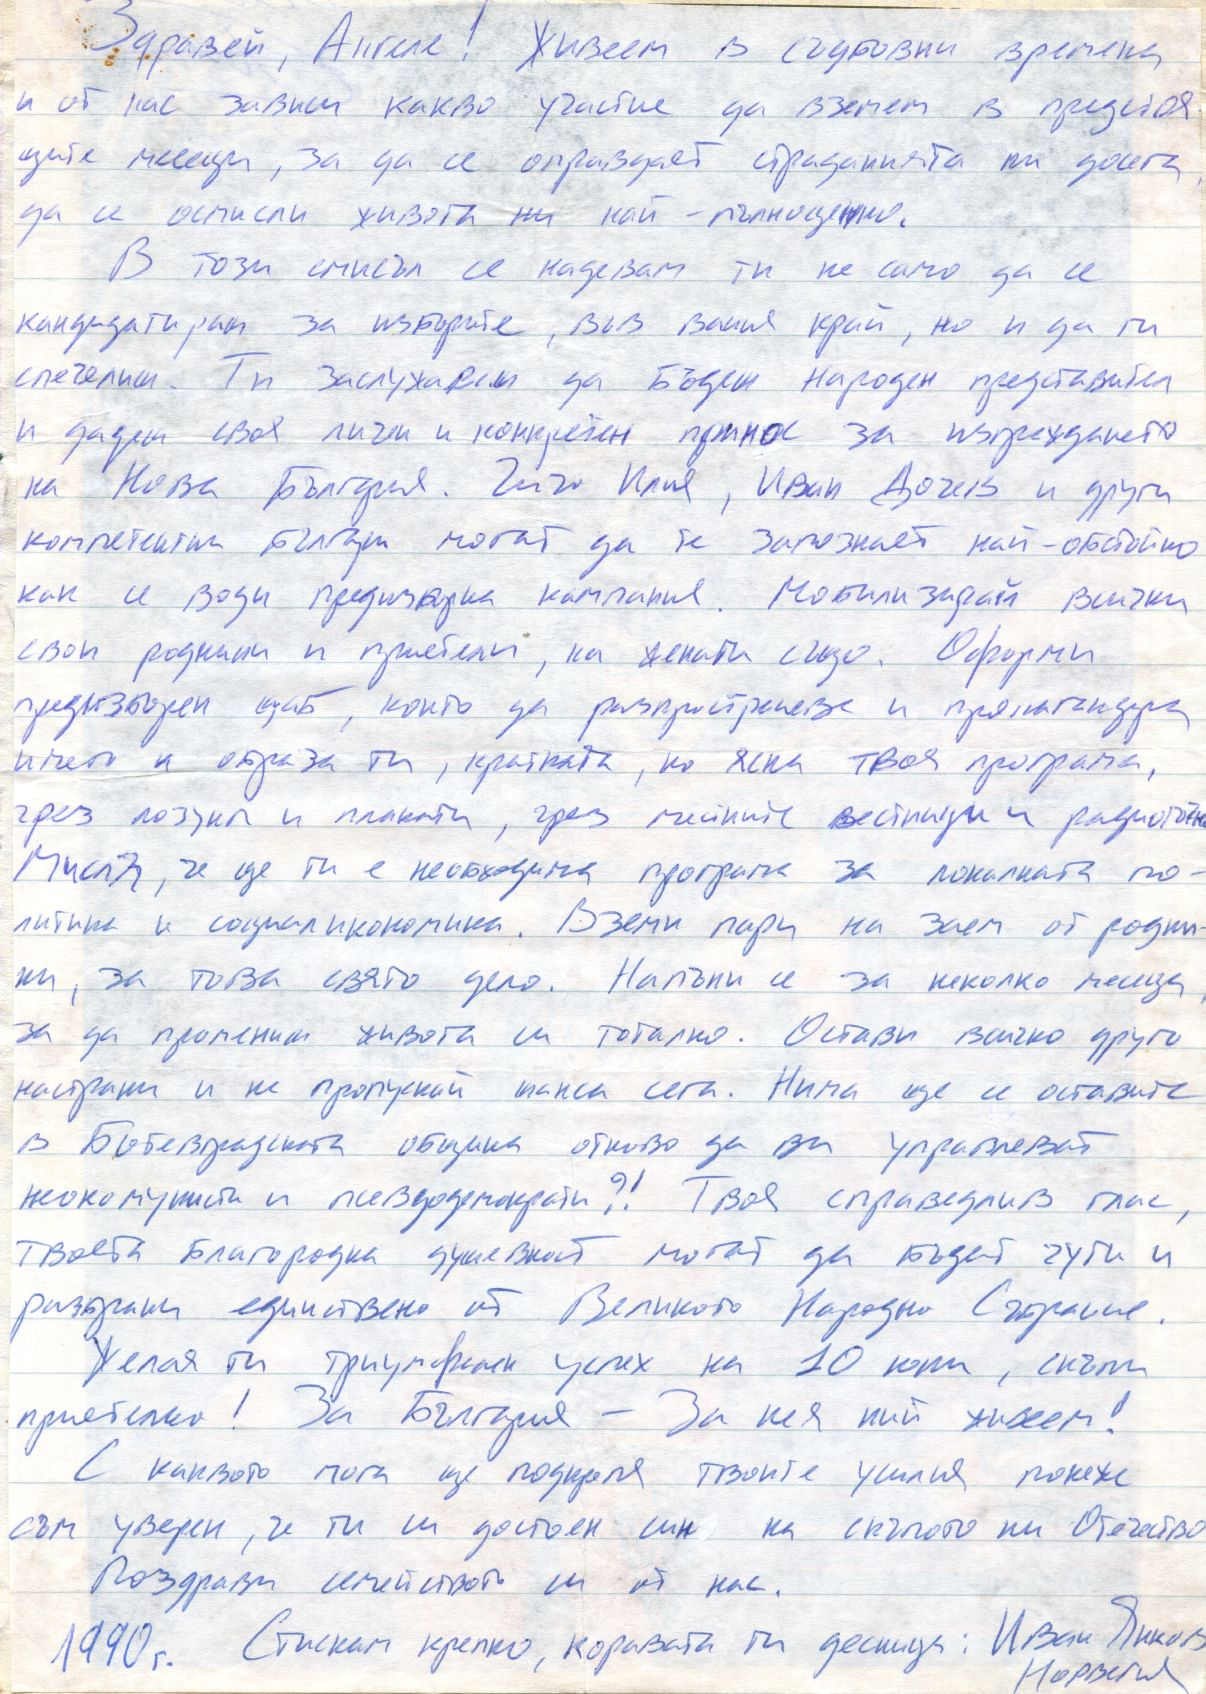 Здравей, Ангеле! Живеем в съдбовни времена
и от нас зависи какво участие да вземем в предстоя-
щите месеци, за да се оправдаят страданията ни досега,
да се осмисли живота ни най-пълноценно.
В този смисъл се надевам ти не само да се
кандидатираш за изборите, във вашия край, но и да ги
спечелиш. Ти заслужаваш да бъдеш народен представител
и дадеш своя личен и конкретен принос за изграждането
на Нова България. Чичо Илия, Иван Дочев и други
компетентни българи могат да те запознаят най-обстойно
как се води предизборна кампания. Мобилизирай всички
свои роднини и приятели, на жената също. Оформи
предизборен щаб, който да разпространява и пропагандира
името и образа ти, кратката, но ясна твоя програма,
чрез лозунги и плакати, чрез местните вестници и радиоточки
Мисля, че ще ти е необходима програма за локалната по-
литика и социаликономика. Вземи пари на заем от родни-
ни, за това свято дело. Напъни се за неколко месеца,
за да промениш живота си тотално. Остави всичко друго
настрани и не пропускай шанса сега. Нима ще се оставите
в Ботевградската община отново да ви управляват
неокомунисти и псевдодемократи?! Твоя справедлив глас,
твоята благородна душевност могат да бъдат чути и
разбрани единствено от Великото Народно Събрание.
Желая ти триумфален успех на 10 юни, скъпи
приятелю! За България – За нея ний живеем!
С каквото мога ще подкрепя твоите усилия понеже
съм уверен, че ти си достоен син на скъпото ни Отечество
Поздрави семейството си от нас.
1990 г. Стискам крепко, коравата ти десница: Иван Янков
Норвегия